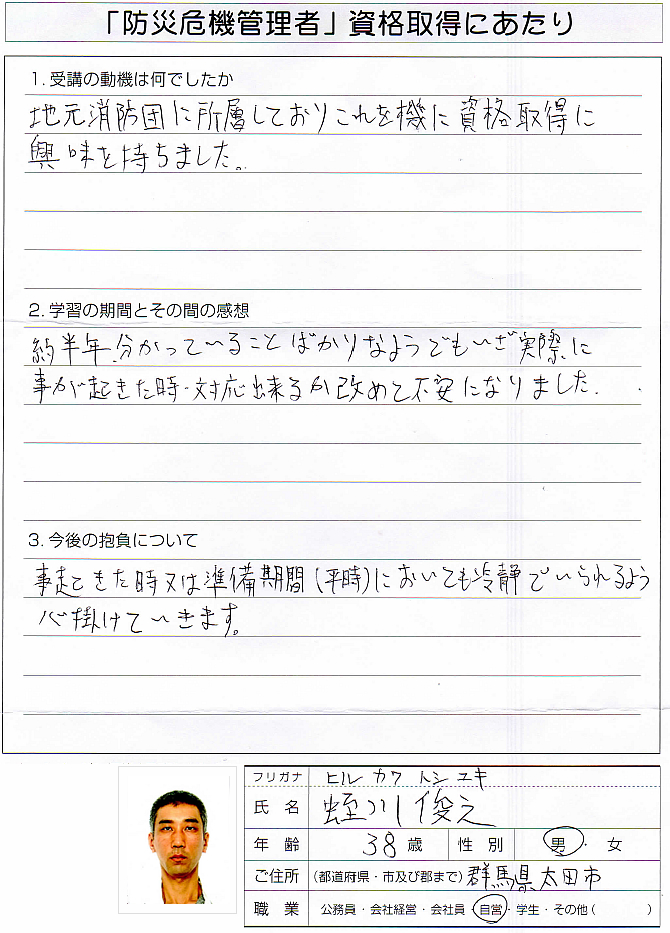 「防災危機管理者」資格取得にあたり
1. 受講の動機は何でしたか
地元消防団に所属しておりこれを機に資格取得に
興味を持ちました。
2. 学習の期間とその間の感想
約半年、分かっていることばかりなようでもいざ実際に
事が起きた時、対応出来るか改めて不安になりました。
3. 今後の抱負について
事起てきた時又は準備期間(平時)においても冷静でいられるよう
心掛けていきます。
フリガナ ヒルカワ トシユキ
氏名 蛭川俊之
年齢 38歳 性別 男・女
ご住所 (都道府県・市及び郡まで) 群馬県太田市
職業 公務員・会社経営・会社員・自営・学生・その他( )